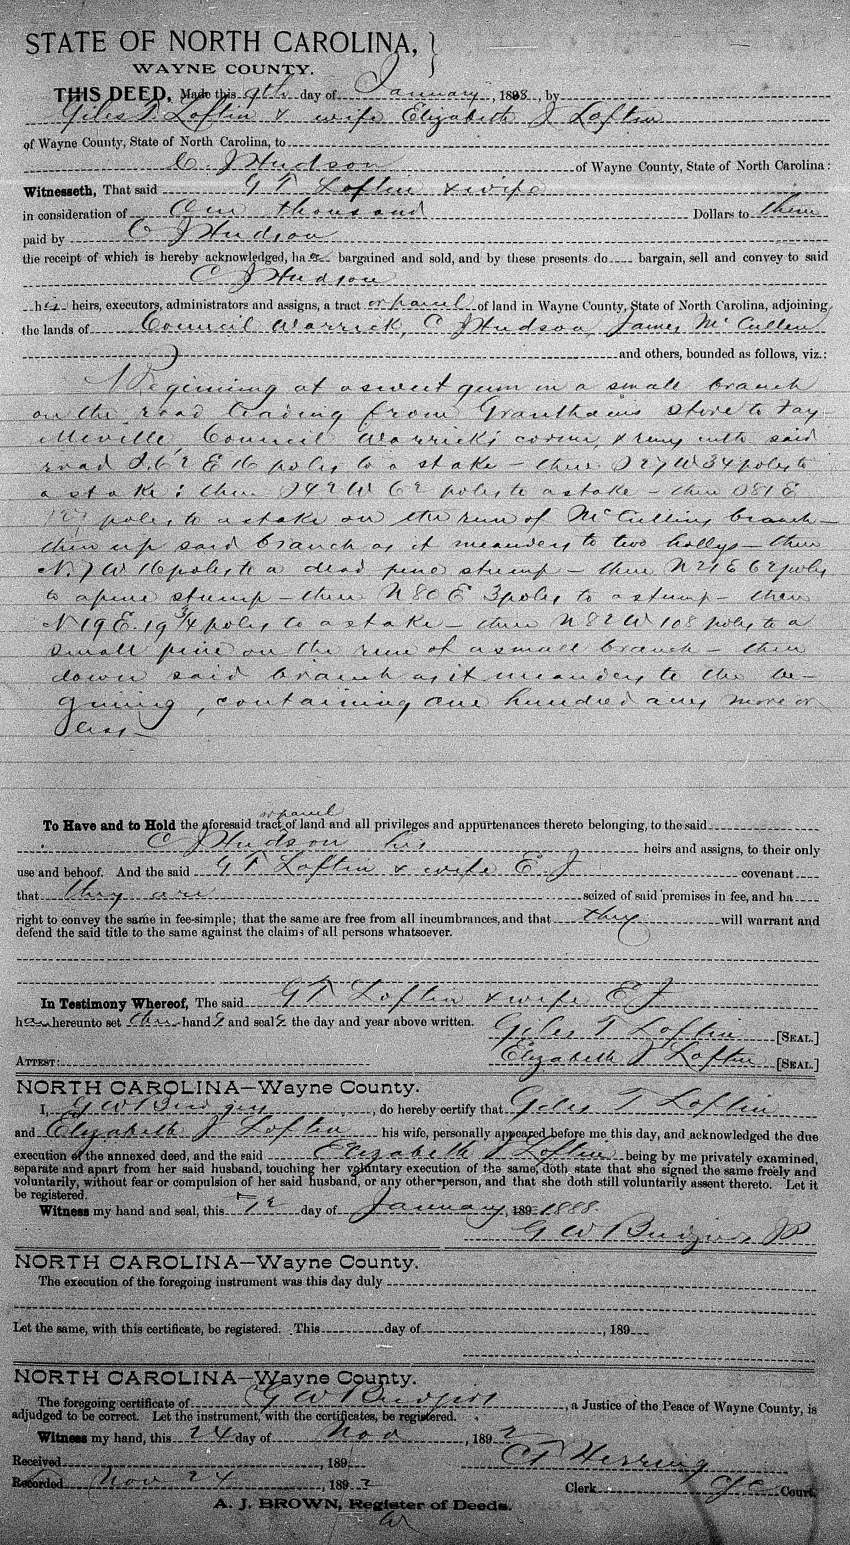 STATE OF NORTH CAROLINA,
WAYNE COUNTY.
THIS DEED, Made this 9th day of January, 1888, by
Giles T Loftin & wife Elizabeth J Loftin
of Wayne County, State of North Carolina, to
C. J Hudson of Wayne County, State of North Carolina:
Witnesseth, That said G T Loftin & wife
in consideration of One thousand Dollars to them
paid by C J Hudson
the receipt of which is hereby acknowledged, ha bargained and sold, and by these presents do bargain, sell and convey to said
C J Hudson
his heirs, executors, administrators and assigns, a tract or parcel of land in Wayne County, State of North Carolina, adjoining
the lands of Council Warrick, C J Hudson, James McCullen
and others, bounded as follows, viz.:
Beginning at a sweet gum on a small branch
on the road leading from Granthams store to Fay-
etteville Council Warrick's corner, & runs with said
road E 16 poles to a stake – then S 27 W 34 poles to
a stake; then S 42 W 62 poles to a stake – then S 81 E
poles to a stake on the run of McCullins branch –
then up said branch as it meanders to two hollys – then
N. 7 W 16 poles to a dead pine stump – then N 21 E 62 poles
to a pine stump – then N 80 E 3 poles to a stump – then
N 19 E. 19 3/4 poles to a stake – then N 82 W 108 poles to a
small pine on the run of a small branch – then
down said branch as it meanders to the be-
gining, containing one hundred acres more or
less –
or parcel
To Have and to Hold the aforesaid tract of land and all privileges and appurtenances thereto belonging, to the said
C J Hudson his heirs and assigns, to their only
use and behoof. And the said G T Loftin & wife E. J covenant
that they are seized of said premises in fee, and ha
right to convey the same in fee-simple; that the same are free from all incumbrances, and that they will warrant and
defend the said title to the same against the claims of all persons whatsoever.
In Testimony Whereof, The said G T Loftin & wife E J
have hereunto set their hands and seals the day and year above written.
Giles T Loftin [SEAL.]
Elizabeth J Loftin [SEAL.]
ATTEST:
NORTH CAROLINA—Wayne County.
I, G W Bridgers, do hereby certify that Giles T Loftin
and Elizabeth J Loftin his wife, personally appeared before me this day, and acknowledged the due
execution of the annexed deed, and the said Elizabeth J Loftin being by me privately examined,
separate and apart from her said husband, touching her voluntary execution of the same, doth state that she signed the same freely and
voluntarily, without fear or compulsion of her said husband, or any other person, and that she doth still voluntarily assent thereto. Let it
be registered.
Witness my hand and seal, this day of January, 189 1888.
G W Bridgers JP
NORTH CAROLINA—Wayne County.
The execution of the foregoing instrument was this day duly
Let the same, with this certificate, be registered. This day of , 189
NORTH CAROLINA—Wayne County.
The foregoing certificate of G W Bridgers, a Justice of the Peace of Wayne County, is
adjudged to be correct. Let the instrument, with the certificates, be registered.
Witness my hand, this 24 day of Nov, 1892
C F Herring
Received , 189
Clerk Court.
Recorded Nov 24, 1892
A. J. BROWN, Register of Deeds.